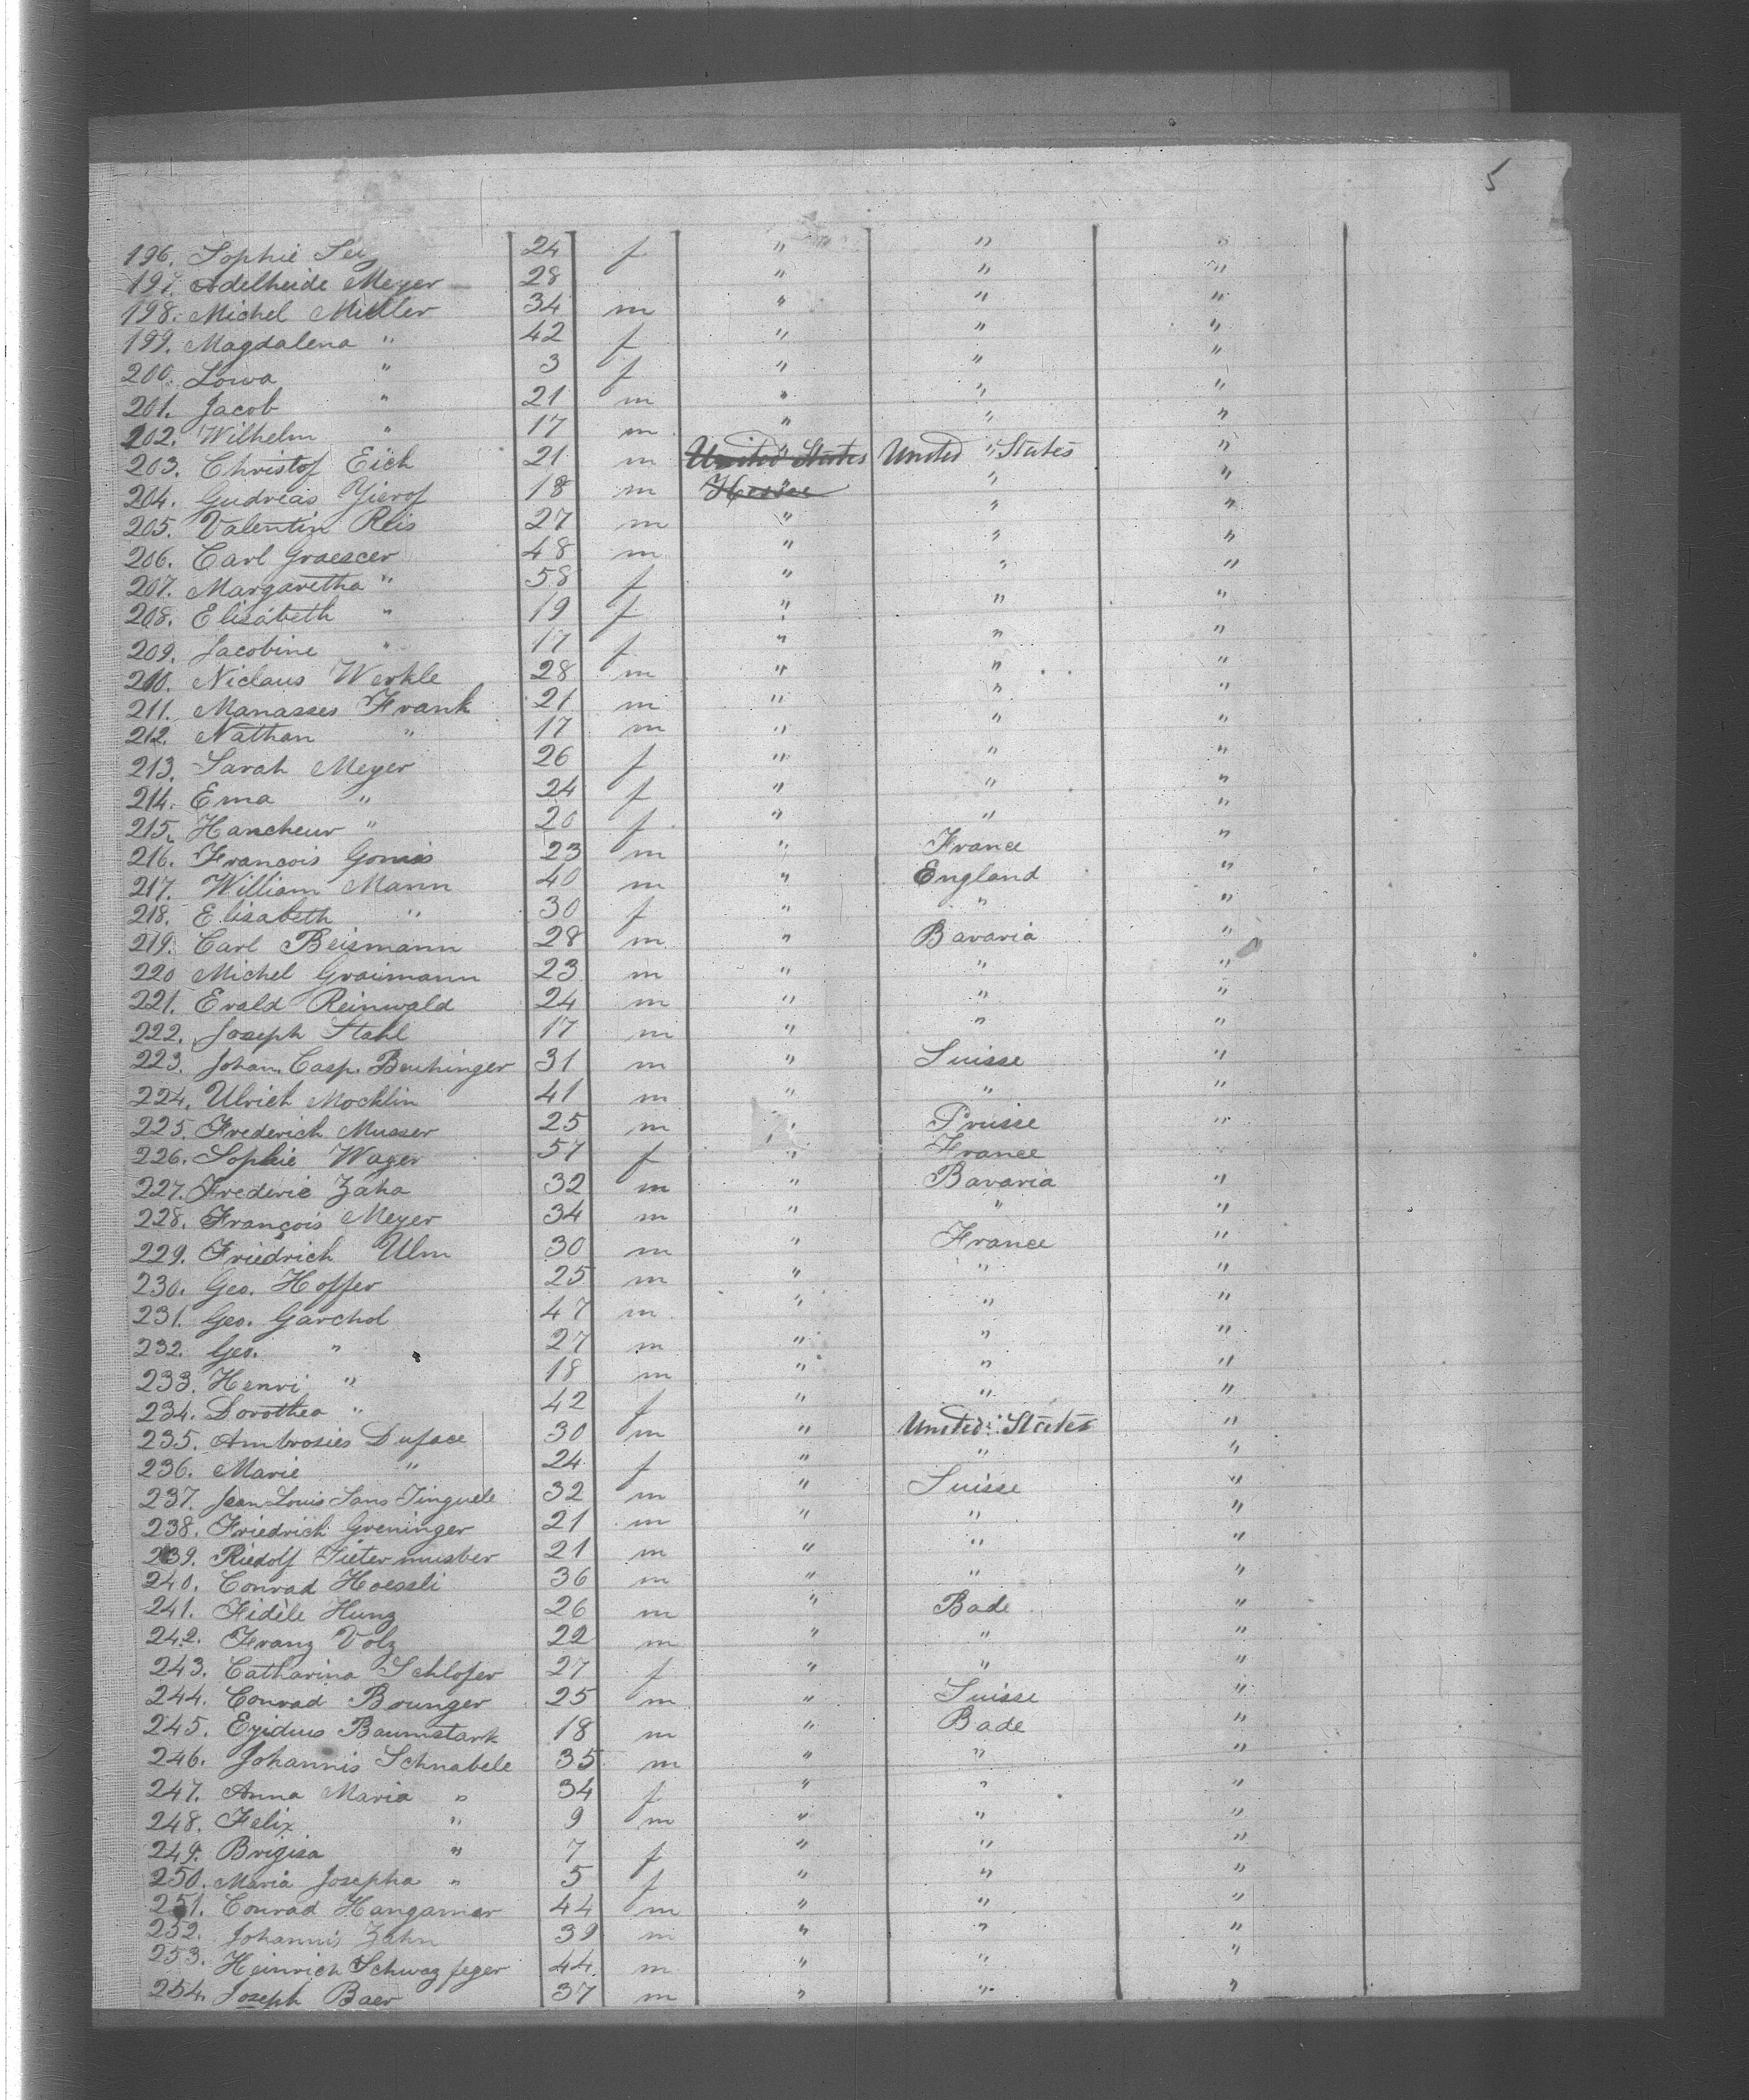 5
196. Sophie 24 f " " "
197. Adelheide Meyer 28 " " "
198. Michel Miller 34 m " " "
199. Magdalena " 42 f " " "
200. Lowa " 3 f " " "
201. Jacob " 21 m " " "
202. Wilhelm " 17 m " " "
203. Christof Eich 21 m United States United States "
204. Gudreas 18 m Hesse " "
205. Valentin Reis 27 m " " "
206. Carl Graescer 48 m " " "
207. Margaretha " 58 f " " "
208. Elisabeth " 19 f " " "
209. Jacobine " 17 f " " "
210. Niclaus Werkle 28 m " " "
211. Manasses Frank 21 m " " "
212. Nathan " 17 m " " "
213. Sarah Meyer 26 f " " "
214. Ema " 24 f " " "
215. Hancheur " 20 f " " "
216. François Gomis 23 m " France "
217. William Mann 40 m " England "
218. Elisabeth " 30 f " " "
219. Carl Beismann 28 m " Bavaria "
220 Michel Graimann 23 m " " "
221. Evald Reinwald 24 m " " "
222. Joseph Stahl 17 m " " "
223. Johan. Casp. Beuhinger 31 m " Suisse "
224. Ulrich Mocklin 41 m " " "
225. Frederich Musser 25 m " Prusse "
226. Sophie Wager 57 f " France "
227. Frederic Zaha 32 m " Bavaria "
228. François Meyer 34 m " " "
229. Friedrich Ulm 30 m " France "
230. Geo. Hoffer 25 m " " "
231. Geo. Garchol 47 m " " "
232. Geo. " 27 m " " "
233. Henri " 18 m " " "
234. Dorothea " 42 f " " "
235. Ambrosies Duface 30 m " United States "
236. Marie " 24 f " " "
237. Jean Louis Sans Tinguele 32 m " Suisse "
238. Friedrich Greninger 21 m " " "
239. Riedolf Fietermusber 21 m " " "
240. Conrad Hoessli 36 m " " "
241. Fidèle Hunz 26 m " Bade "
242. Franz Volz 22 m " " "
243. Catharina Schlofer 27 f " " "
244. Conrad Brunger 25 m " Suisse "
245. Egidius Baumstark 18 m " Bade "
246. Johannis Schnabele 35 m " " "
247. Anna Maria " 34 f " " "
248. Felix " 9 m " " "
249. Brigisa " 7 f " " "
250. Maria Josepha " 5 f " " "
251. Conrad Hangamer 44 m " " "
252. Johannis Zahn 39 m " " "
253. Heinrich Schwazfeger 44 m " " "
254. Joseph Baer 37 m " " "